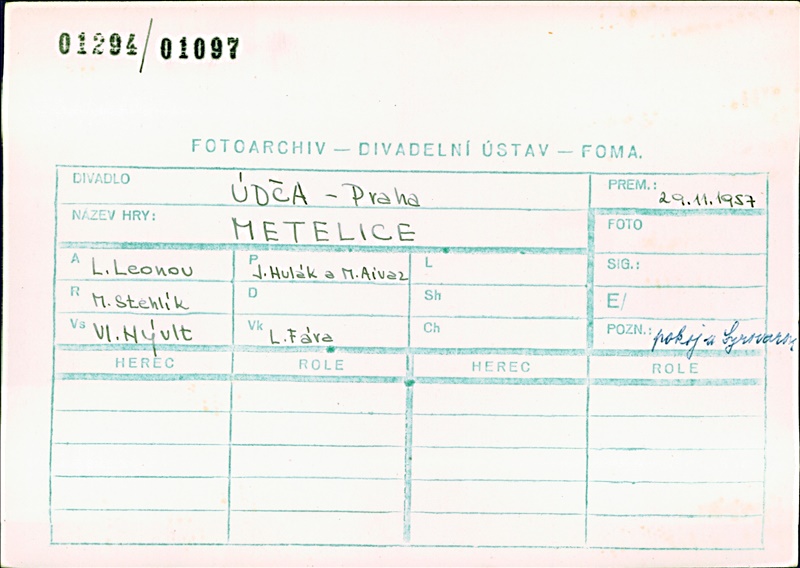 01294/01097
FOTOARCHIV — DIVADELNÍ ÚSTAV — FOMA.
DIVADLO ÚDČA - Praha
PREM.: 29.11.1957
NÁZEV HRY: METELICE
FOTO
A L. Leonov
P J. Hulák a M. Aivaz
L
SIG.:
R M. Stehlík
D
Sh
E/
Vs Vl. Nývlt
Vk L. Fára
Ch
POZN.: pokoj u
HEREC ROLE HEREC ROLE